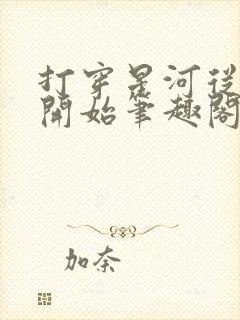 打穿星河從
開始筆趣閣
加奈